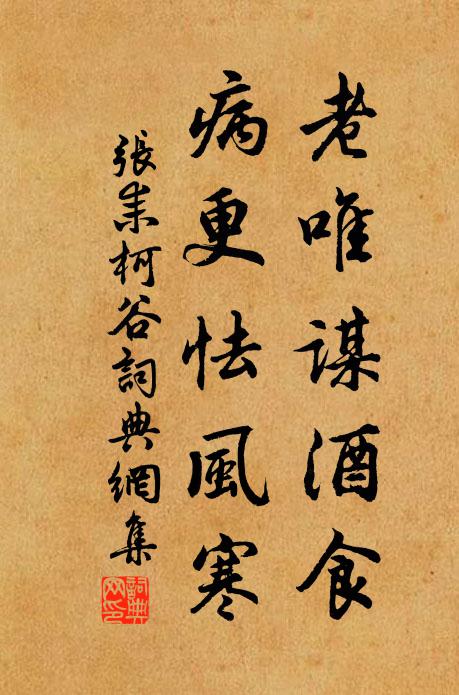 老唯謀酒食
病更怯風寒
張耒柯谷詞典網集
詞典網印